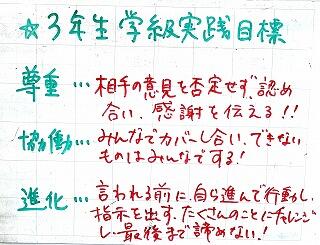 ☆3年生学級実践目標
尊重…相手の意見を否定せず、認め
合い、感謝を伝える!!
協働…みんなでカバーし合い、できない
ものはみんなでする!
進化…言われる前に、自ら進んで行動し、
指示を出す。たくさんのことにチャレンジ
し、最後まで諦めない!